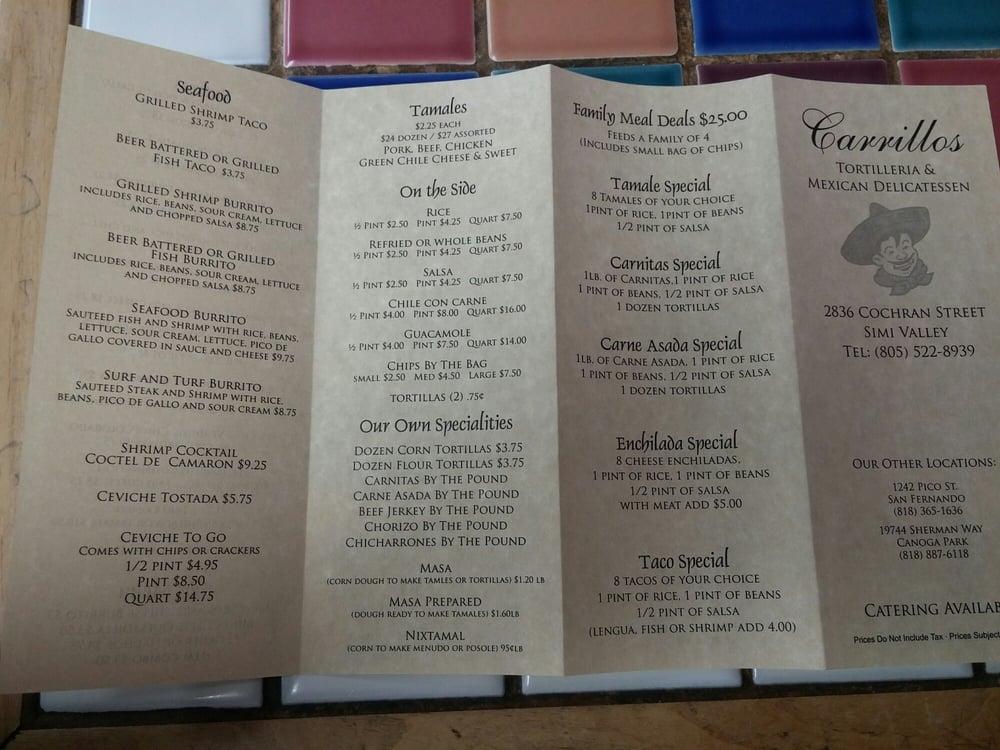 Seafood
Grilled Shrimp Taco
$3.75
Beer Battered or Grilled
Fish Taco $3.75
Grilled Shrimp Burrito
includes rice, beans, sour cream, lettuce
and chopped salsa $8.75
Beer Battered or Grilled
Fish Burrito
includes rice, beans, sour cream, lettuce
and chopped salsa $8.75
Seafood Burrito
Sauteed fish and shrimp with rice, beans,
lettuce, sour cream, lettuce, pico de
gallo covered in sauce and cheese $9.75
Surf and Turf Burrito
Sauteed Steak and Shrimp with rice,
beans, pico de gallo and sour cream $8.75
Shrimp Cocktail
Coctel de Camaron $9.25
Ceviche Tostada $5.75
Ceviche To Go
Comes with chips or crackers
1/2 pint $4.95
Pint $8.50
Quart $14.75
Tamales
$2.25 each
$24 dozen / $27 assorted
Pork, Beef, Chicken
Green Chile Cheese & Sweet
On the Side
Rice
½ Pint $2.50 Pint $4.25 Quart $7.50
Refried or whole beans
½ Pint $2.50 Pint $4.25 Quart $7.50
Salsa
½ Pint $2.50 Pint $4.25 Quart $7.50
Chile con carne
½ Pint $4.00 Pint $8.00 Quart $16.00
Guacamole
½ Pint $4.00 Pint $7.50 Quart $14.00
Chips By The Bag
Small $2.50 Med $4.50 Large $7.50
Tortillas (2) .75¢
Our Own Specialities
Dozen Corn Tortillas $3.75
Dozen Flour Tortillas $3.75
Carnitas By The Pound
Carne Asada By The Pound
Beef Jerkey By The Pound
Chorizo By The Pound
Chicharrones By The Pound
Masa
(corn dough to make tamles or tortillas) $1.20 lb
Masa Prepared
(dough ready to make tamales) $1.60lb
Nixtamal
(corn to make menudo or posole) 95¢lb
Family Meal Deals $25.00
Feeds a family of 4
(Includes small bag of chips)
Tamale Special
8 Tamales of your choice
1pint of rice, 1pint of beans
1/2 pint of salsa
Carnitas Special
1lb. of Carnitas,1 pint of rice
1 pint of beans, 1/2 pint of salsa
1 dozen tortillas
Carne Asada Special
1lb. of Carne Asada, 1 pint of rice
1 pint of beans, 1/2 pint of salsa
1 dozen tortillas
Enchilada Special
8 cheese enchiladas,
1 pint of rice, 1 pint of beans
1/2 pint of salsa
with meat add $5.00
Taco Special
8 tacos of your choice
1 pint of rice, 1 pint of beans
1/2 pint of salsa
(Lengua, fish or shrimp add 4.00)
Carrillos
Tortilleria &
Mexican Delicatessen
2836 Cochran Street
Simi Valley
Tel: (805) 522-8939
Our Other Locations:
1242 Pico St.
San Fernando
(818) 365-1636
19744 Sherman Way
Canoga Park
(818) 887-6118
Catering Availab
Prices Do Not Include Tax · Prices Subject